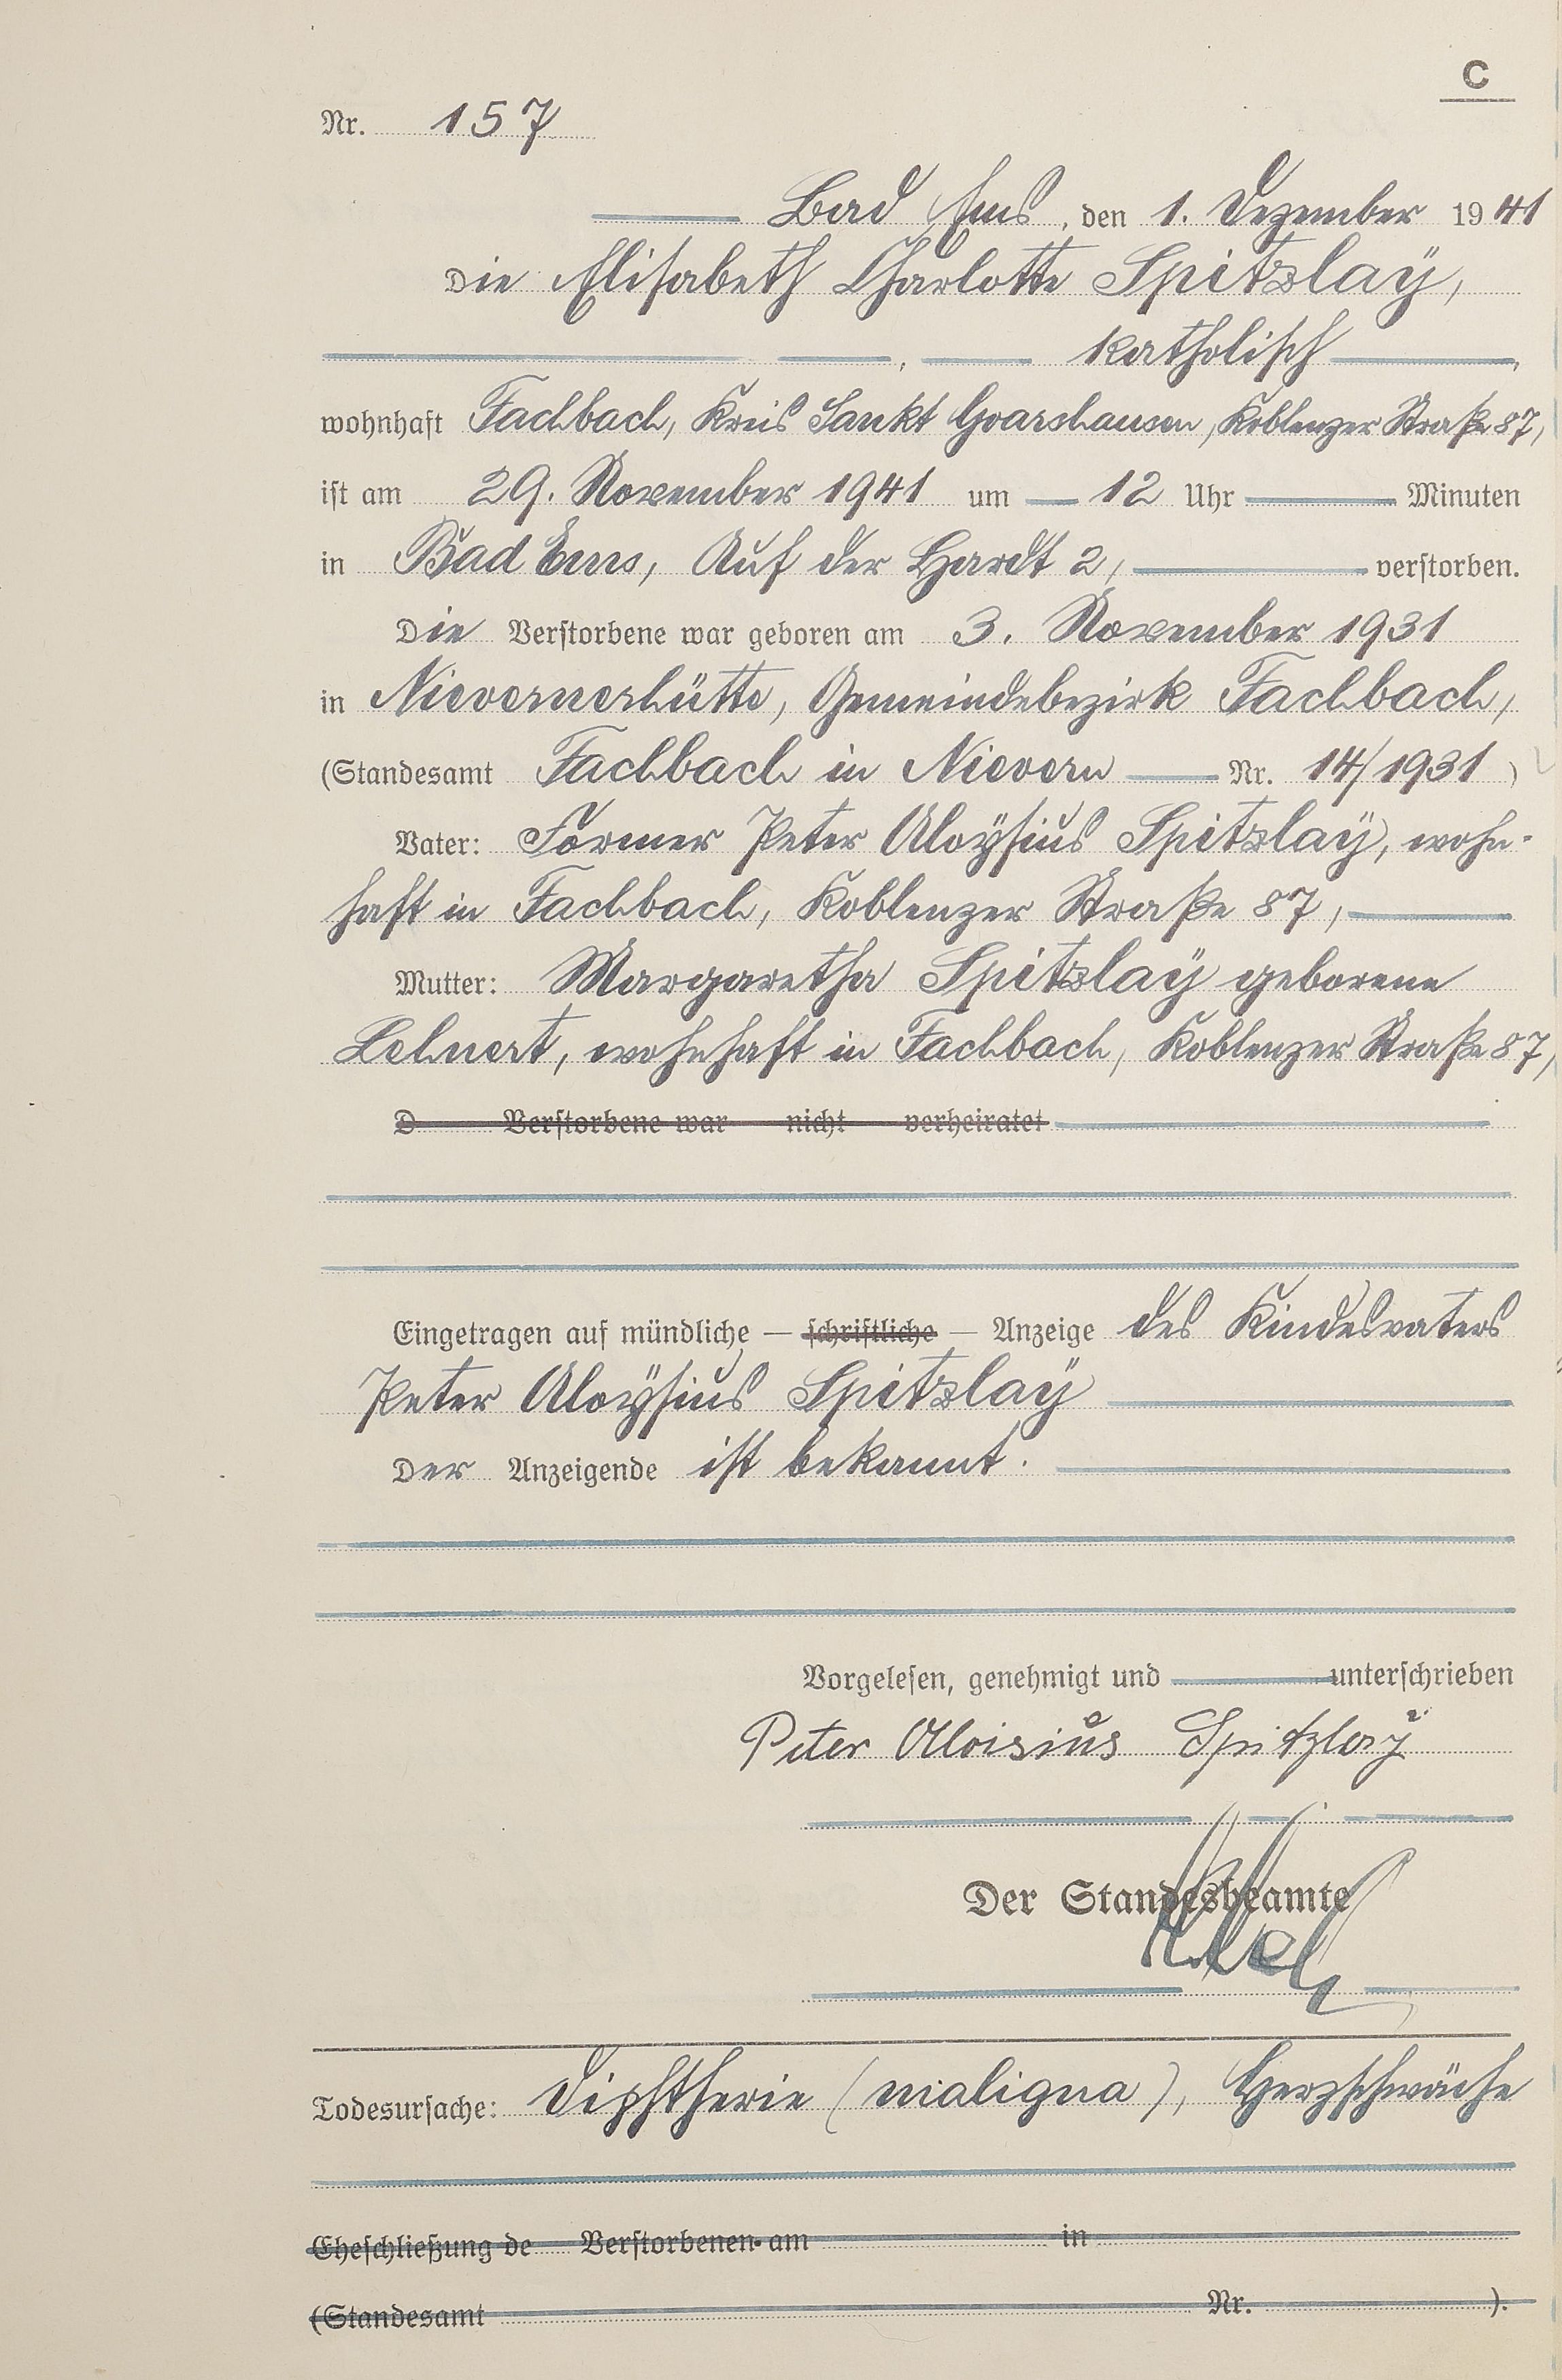 C
Nr. 157
Bad Ems, den 1. Dezember 1941
Die Elisabeth Charlotte Spitzlaÿ,
, katholisch ,
wohnhaft Fachbach, Kreis Sankt Goarshausen, Koblenzer Straße 87,
ist am 29. November 1941 um 12 Uhr Minuten
in Bad Ems, Auf der Hardt 2, verstorben.
Die Verstorbene war geboren am 3. November 1931
in Nievernerhütte, Gemeindebezirk Fachbach,
(Standesamt Fachbach in Nievern Nr. 14/1931)
Vater: Former Peter Aloÿsius Spitzlaÿ, wohn-
haft in Fachbach, Koblenzer Straße 87,
Mutter: Margaretha Spitzlaÿ geborene
Lehnert, wohnhaft in Fachbach, Koblenzer Straße 87,
D Verstorbene war nicht verheiratet
Eingetragen auf mündliche — schriftliche — Anzeige des Kindesvaters
Peter Aloÿsius Spitzlaÿ
Der Anzeigende ist bekannt.
Vorgelesen, genehmigt und unterschrieben
Peter Aloisius Spitzlaÿ
Der Standesbeamte
Todesursache: Diphtherie (maligna), Herzschwäche
Eheschließung de Verstorbenen am in
(Standesamt Nr. ).